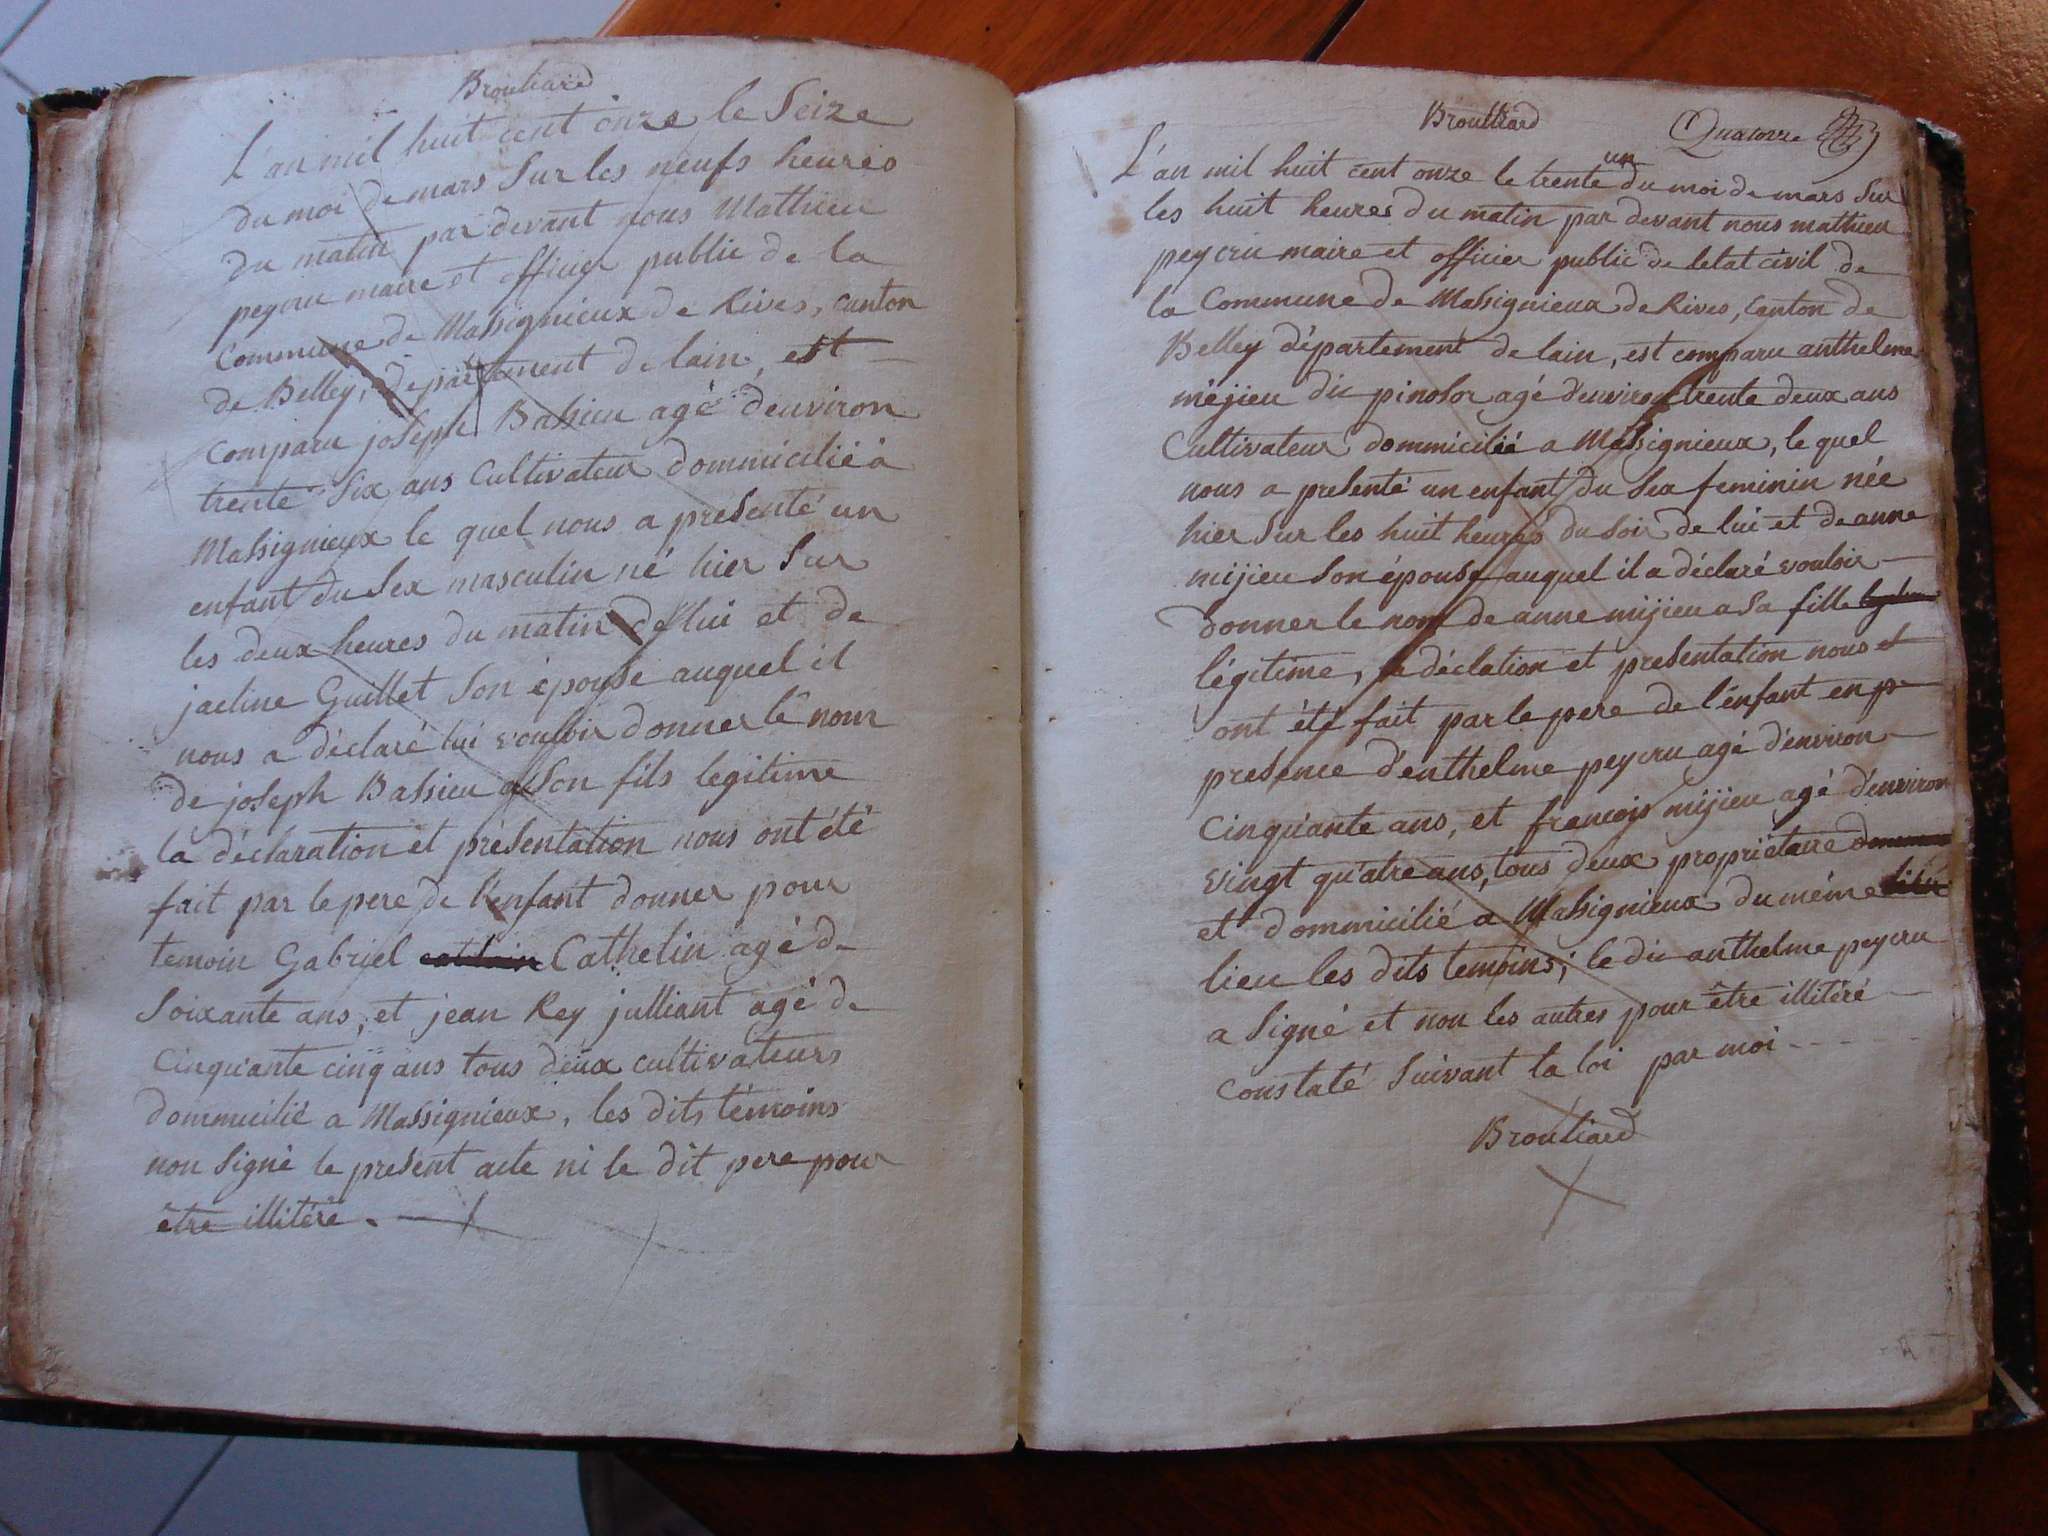 Brouliard
L'an mil huit cent onze le Seize
du moi de mars Sur les neufs heures
du matin par devant nous Mathieu
peycru maire et officier public de la
Commune de Massignieux de Rives, canton
de Belley, departement de lain, est
comparu joseph Bassieu agé d'environ
trente Six ans Cultivateur dommicilié a
Massignieux le quel nous a présenté un
enfant du Sex masculin né hier Sur
les deux heures du matin de lui et de
jacline Guillet Son épouse auquel il
nous a déclaré lui vouloir donner le nom
de joseph Bassieu a Son fils legitime
la déclaration et présentation nous ont été
fait par le pere de l'enfant donner pour
temoin Gabriel Cathelin agé de
Soixante ans, et jean Rey julliant agé de
Cinquante cinq ans tous deux cultivateurs
dommicilié a Massignieux, les dits témoins
non Signé le présent acte ni le dit pere pour
être illitéré.
Broulliard
Quatorze
L'an mil huit cent onze le trente un du moi de mars Sur
les huit heures du matin par devant nous mathieu
peycru maire et officier public de letat civil de
la Commune de Massignieux de Rives, canton de
Belley département de lain, est comparu anthelme
méjieu dit pinolor agé d'environ trente deux ans
Cultivateur dommicilié a Massignieux, le quel
nous a présenté un enfant du Sex feminin née
hier Sur les huit heures du Soir de lui et de anne
mijieu Son épouse auquel il a déclaré vouloir
donner le nom de anne mijieu a Sa fille
légitime, la déclation et présentation nous
ont été fait par le pere de l'énfant en
presence d'enthelme peycru agé d'environ
Cinquante ans, et francois mijieu agé d'environ
vingt qu'atre ans, tous deux propriétaire
et dommicilié a Massignieux du même
lieu les dits temoins; le dit anthelme peycru
a Signé et non les autres pour être illitéré
constaté Suivant la loi par moi
Brouliard